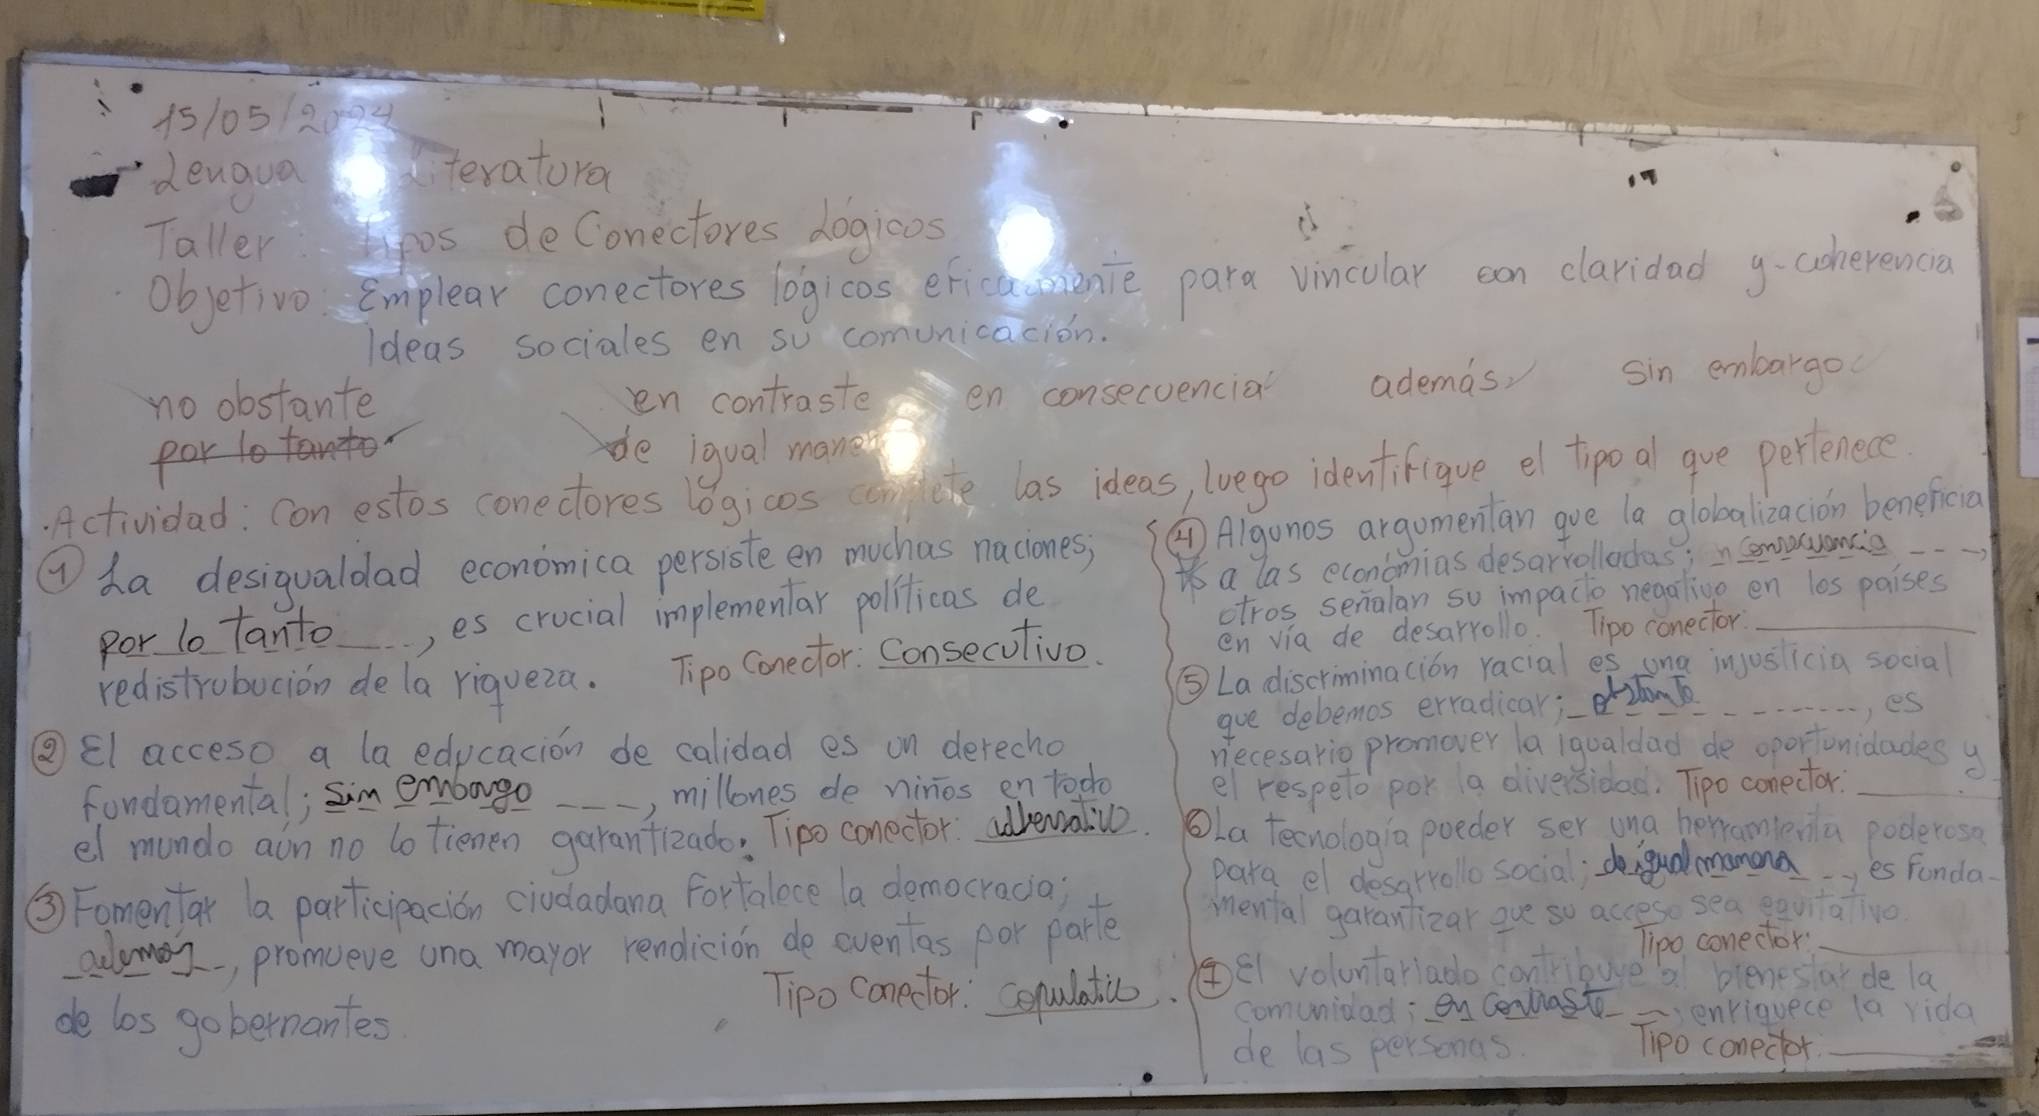 15/05/2024
Lengua Literatura
Taller: Tipos de Conectores Lógicos
Objetivo: Emplear conectores lógicos eficazmente para vincular con claridad y coherencia
Ideas sociales en su comunicación.
no obstante en contraste en consecuencia además sin embargo
por lo tanto de igual manera
Actividad: Con estos conectores lógicos complete las ideas, luego identifique el tipo al que pertenece.
① La desigualdad económica persiste en muchas naciones;
por lo tanto, es crucial implementar políticas de
redistrubución de la riqueza. Tipo Conector: Consecutivo.
② El acceso a la educación de calidad es un derecho
fundamental; sin embargo, millones de niños en todo
el mundo aún no lo tienen garantizado. Tipo conector: adversativo.
③ Fomentar la participación ciudadana fortalece la democracia;
ademas, promueve una mayor rendición de cuentas por parte
de los gobernantes. Tipo Conector: copulativo.
④ Algunos argumentan que la globalización beneficia
a las economías desarrolladas; n consecuencia,
otros señalan su impacto negativo en los países
en vía de desarrollo. Tipo conector:
⑤ La discriminación racial es una injusticia social
que debemos erradicar; obstante, es
necesario promover la igualdad de oportunidades y
el respeto por la diversidad. Tipo conector:
⑥ La tecnología pueder ser una herramienta poderosa
para el desarrollo social; de igual manera, es funda-
mental garantizar que su acceso sea equitativo.
Tipo conector:
⑦ El voluntariado contribuye al bienestar de la
comunidad; en contraste, enriquece la vida
de las personas. Tipo conector: